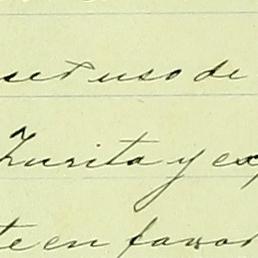 uso de
Zurita y ex
te en favor